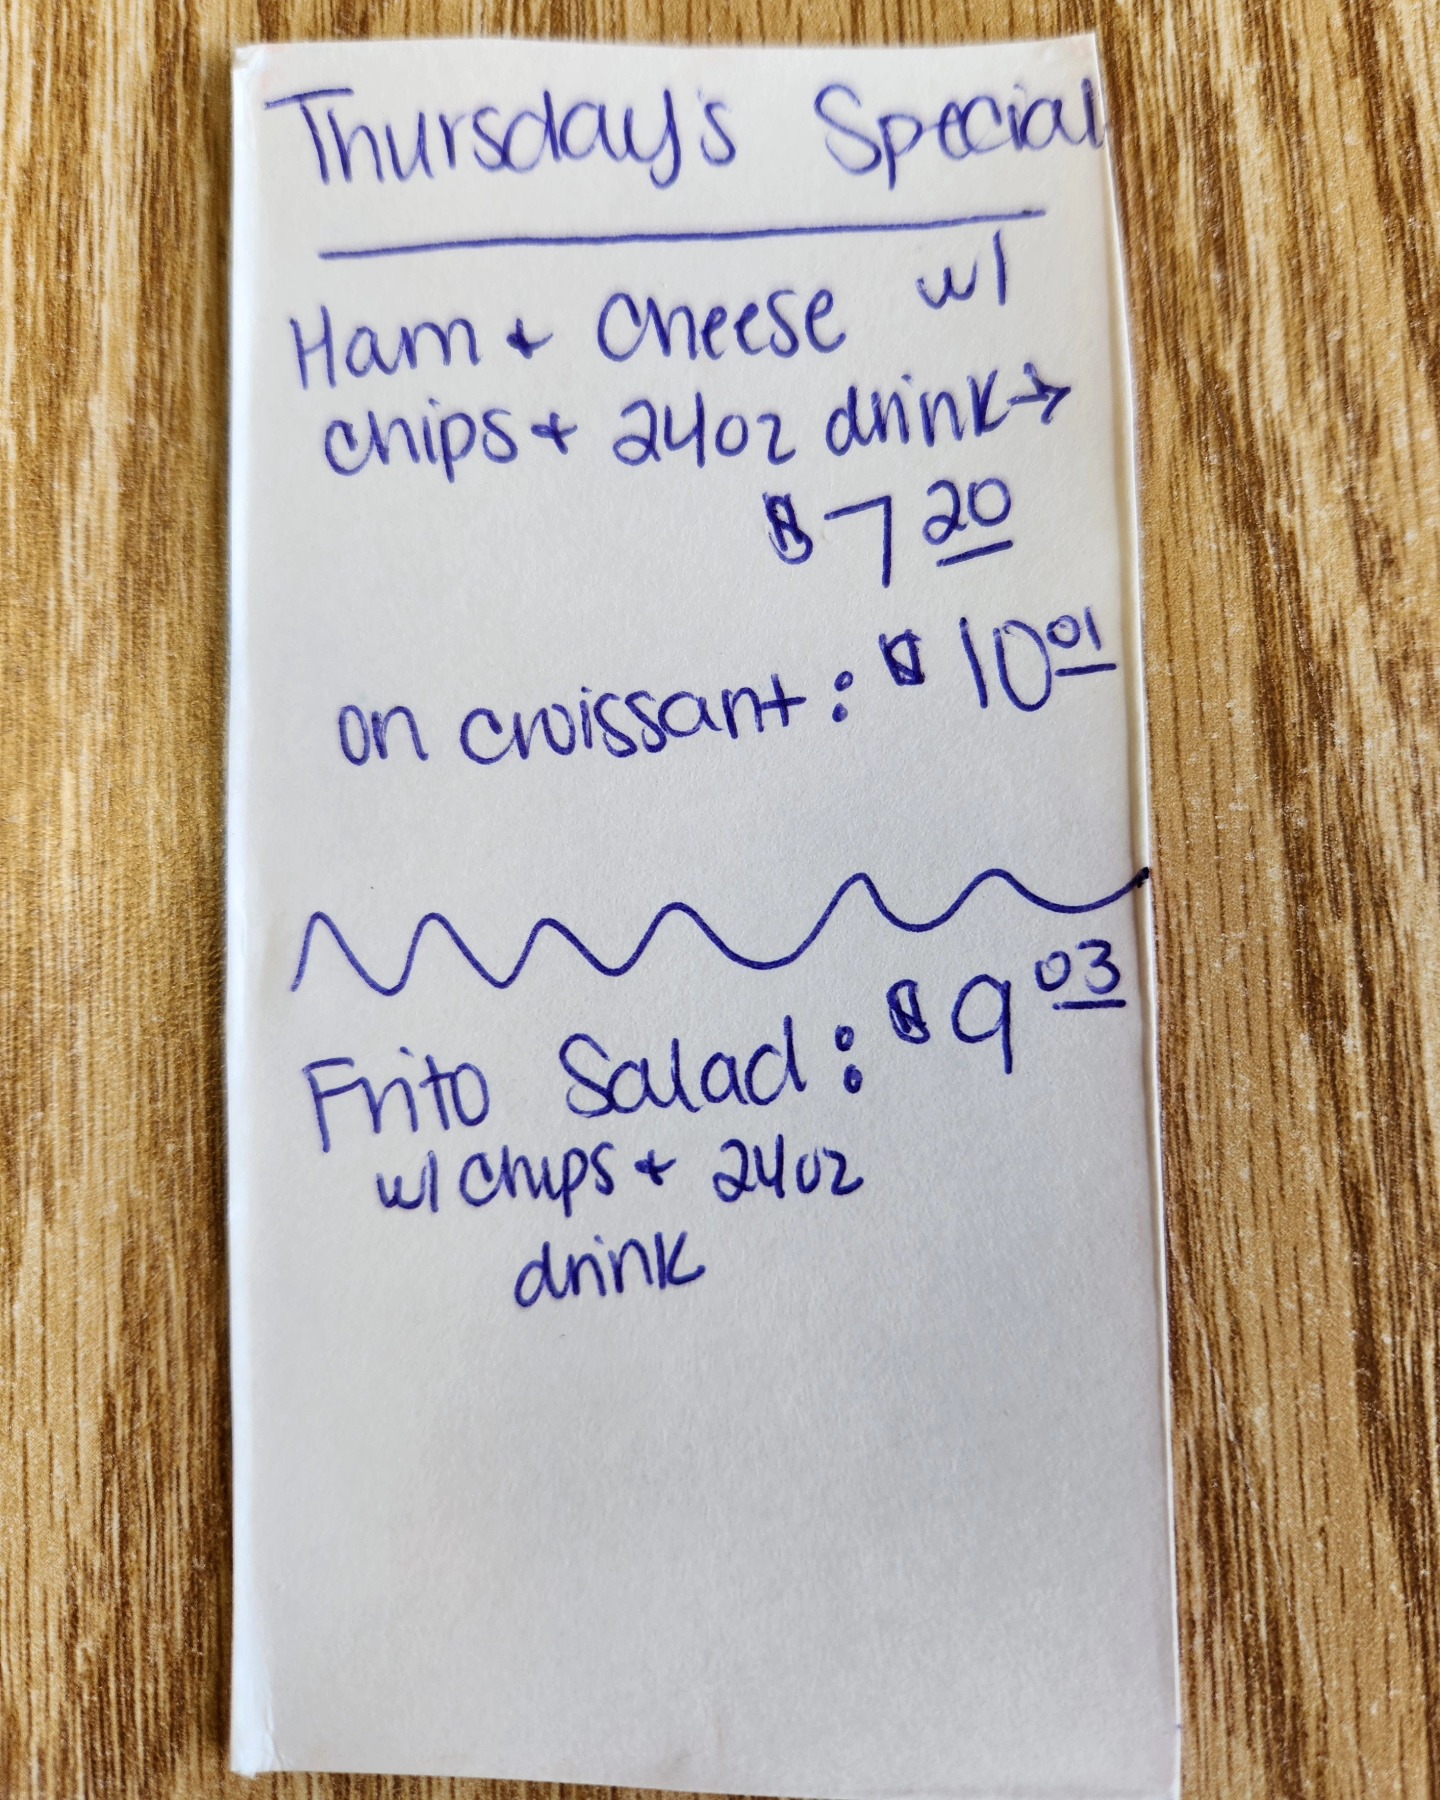 Thursday's Special
Ham + Cheese w/
chips + 24oz drink →
$7 20
on croissant : $10 01
Frito Salad : $9 03
w/ chips + 24oz
drink